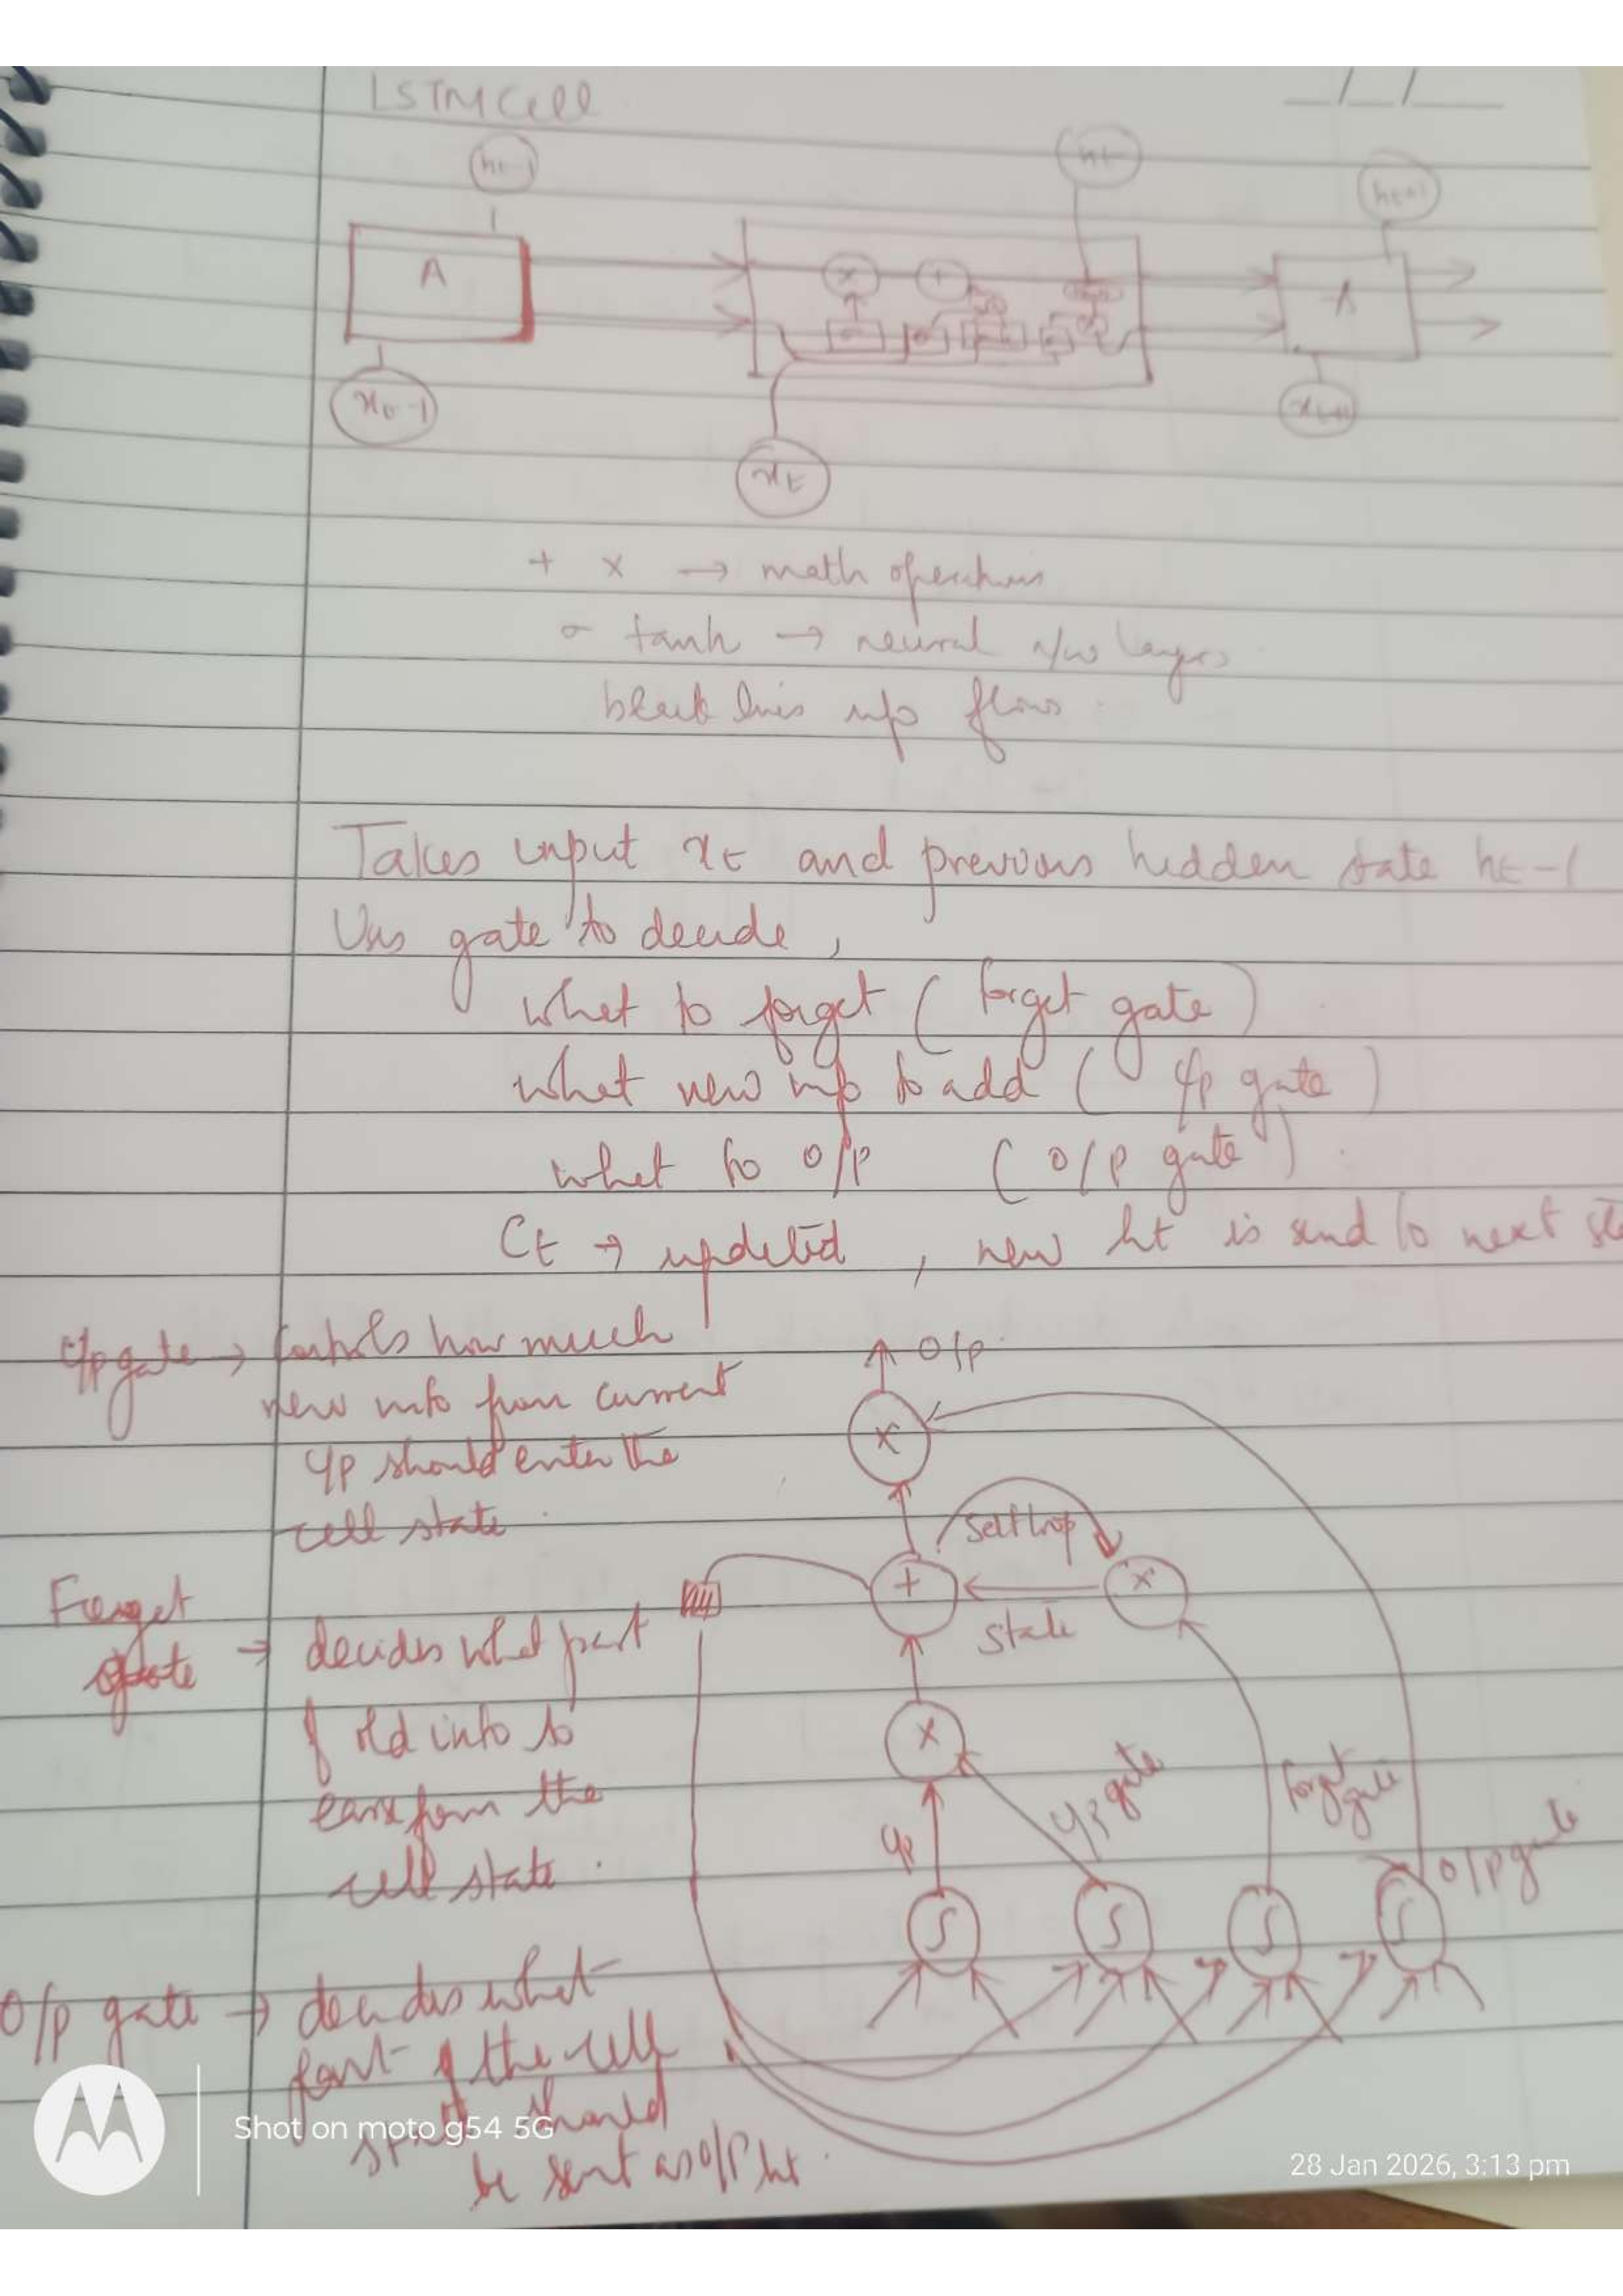 LSTM Cell
__/__/____
ht-1
ht
ht+1
A
x
+
A
xt-1
xt+1
xt
+ x → math operations
σ tanh → neural n/w layers
black lines info flows.
Takes input xt and previous hidden state ht-1
Uses gate to decide,
what to forget (forget gate)
what new info to add (i/p gate)
what to o/p (o/p gate).
Ct → updated, new ht is send to next
i/p gate → controls how much
new info from current
i/p should enter the
cell state.
Forget
gate → decides what part
of old info to
erase from the
cell state.
O/p gate → decides what
part of the cell
state should
be sent as o/p ht.
O/p
x
self loop
+
x
state
x
i/p
i/p gate
forget
gate
o/p gate
Shot on moto g54 5G
28 Jan 2026, 3:13 pm